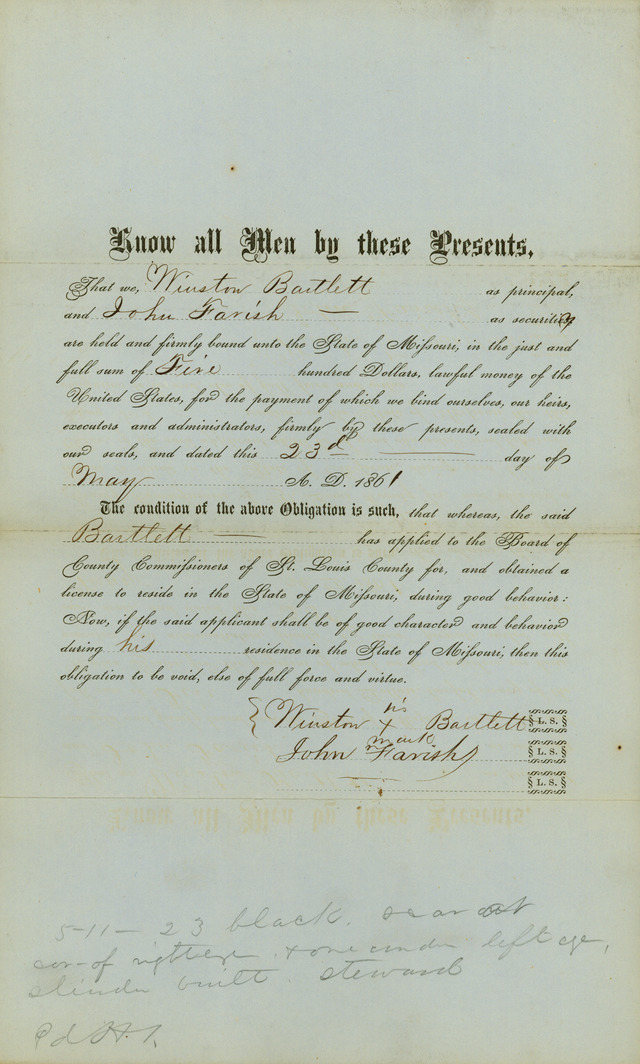 Know all Men by these Presents,
That we, Winston Bartlett as principal,
and John Farish — as securities
are held and firmly bound unto the State of Missouri, in the just and
full sum of Five hundred Dollars, lawful money of the
United States, for the payment of which we bind ourselves, our heirs,
executors and administrators, firmly by these presents, sealed with
our seals, and dated this 23d — day of
May A. D. 1861
The condition of the above Obligation is such, that whereas, the said
Bartlett — has applied to the Board of
County Commissioners of St. Louis County for, and obtained a
license to reside in the State of Missouri, during good behavior:
Now, if the said applicant shall be of good character and behavior
during his residence in the State of Missouri, then this
obligation to be void, else of full force and virtue.
his
Winston x Bartlett L. S.
mark
John Farish L. S.
L. S.
5-11- 23 black. scar at
cor-of right eye + one under left eye,
slender built. steward
Pd